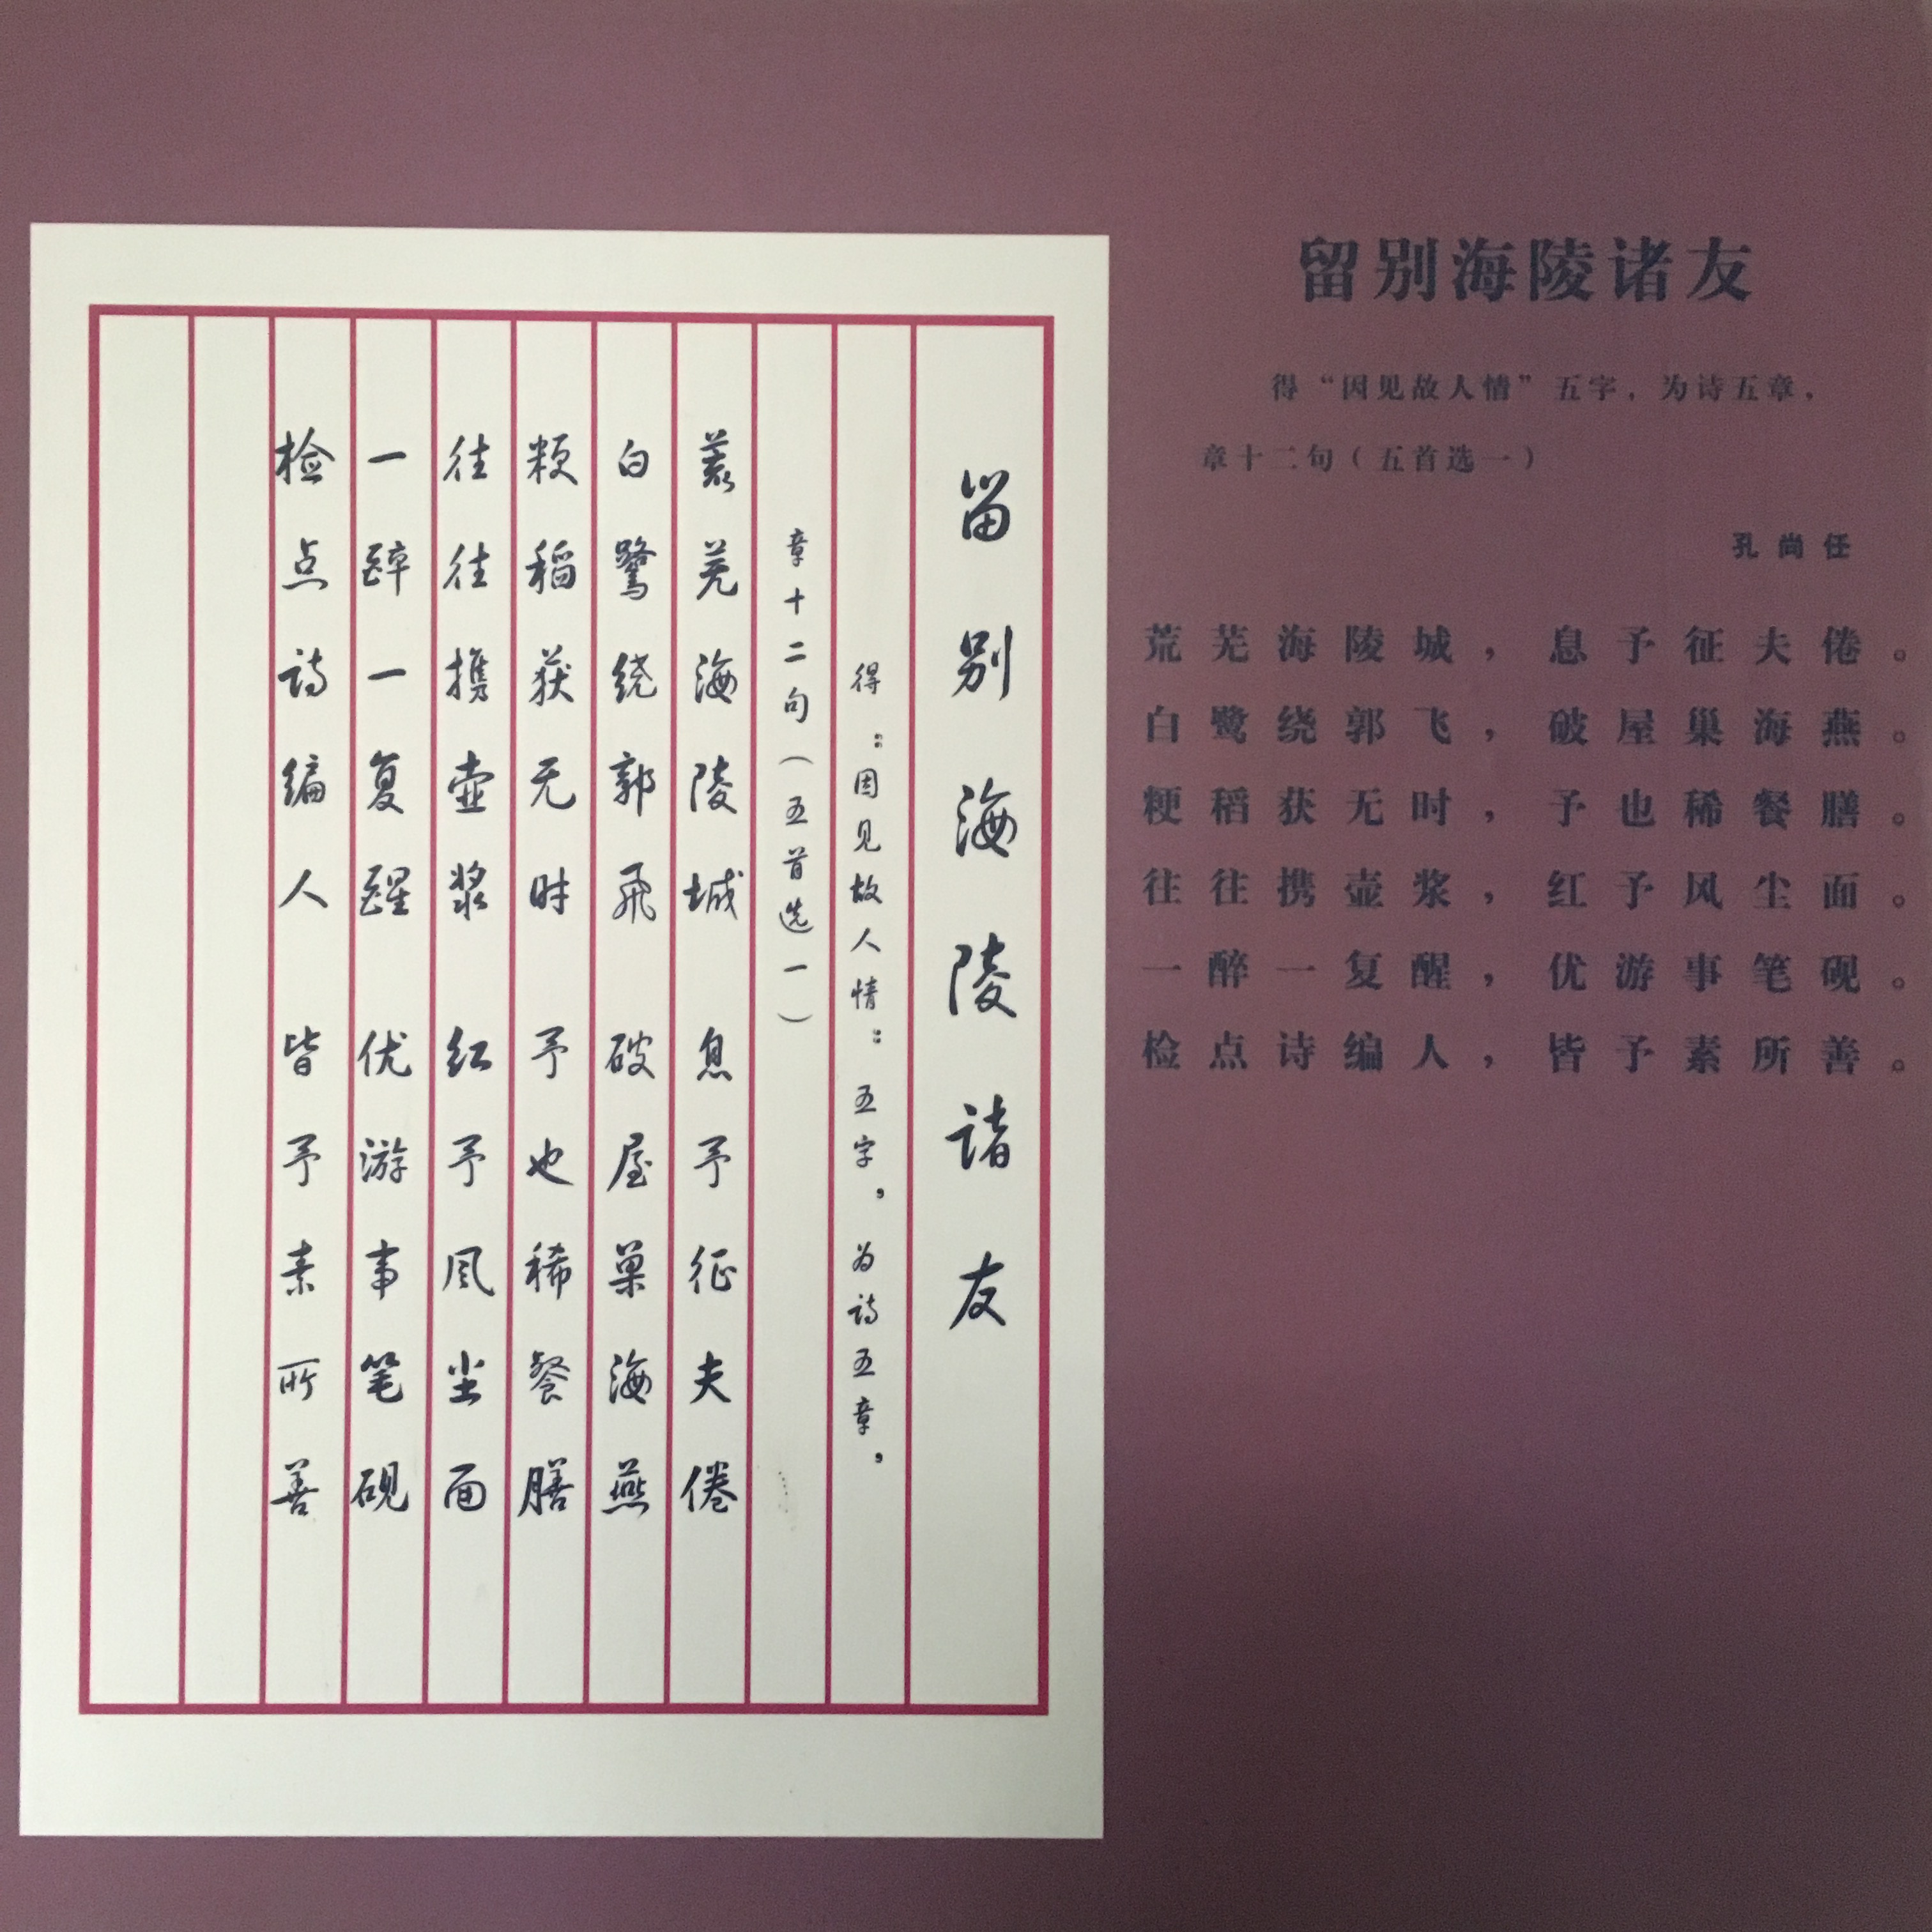 留别海陵诸友
得“因见故人情”五字，为诗五章，
章十二句（五首选一）
荒芜海陵城 息予征夫倦
白鹭绕郭飞 破屋巢海燕
粳稻获无时 予也稀餐膳
往往携壶浆 红予风尘面
一醉一复醒 优游事笔砚
检点诗编人 皆予素所善
留别海陵诸友
得“因见故人情”五字，为诗五章，
章十二句（五首选一）
孔尚任
荒芜海陵城，息予征夫倦。
白鹭绕郭飞，破屋巢海燕。
粳稻获无时，予也稀餐膳。
往往携壶浆，红予风尘面。
一醉一复醒，优游事笔砚。
检点诗编人，皆予素所善。